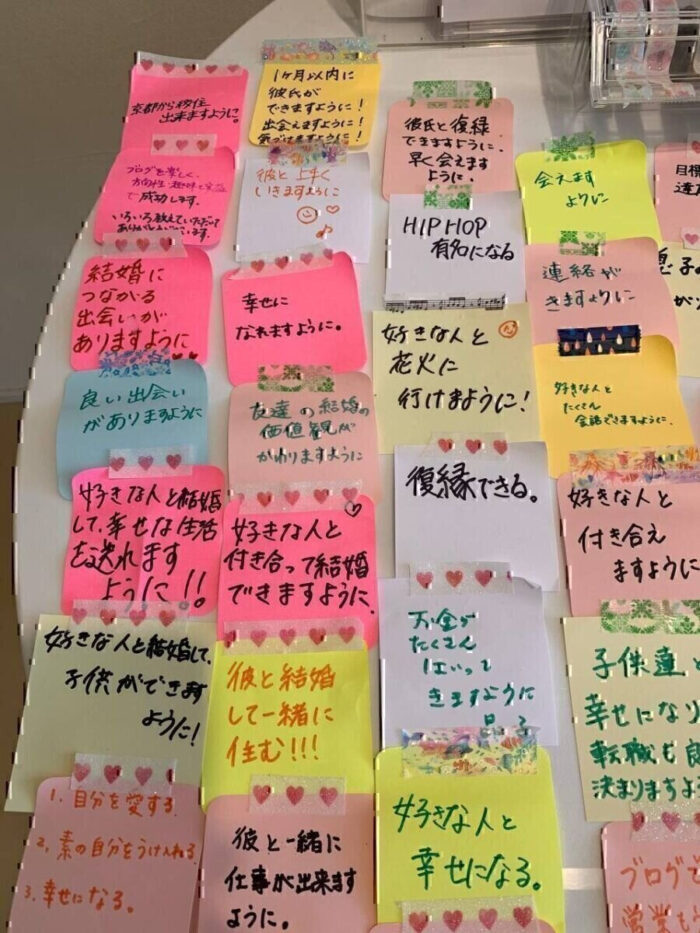 京都から移住
出来ますように。
ブログを楽しく、
方向性・趣味と
で成功します。
いろいろ教えていただいて
ありがとうございます。
結婚に
つながる
出会いが
ありますように
良い出会い
がありますように
好きな人と結婚
して、幸せな生活
を送れます
ように!!
好きな人と結婚して、
子供ができます
ように!
1. 自分を愛する
2, 素の自分をうけ入れる
3. 幸せになる。
1ヶ月以内に
彼氏が
できますように!
出会えますように!
気づけますように!
彼と上手く
いきますように
幸せに
なれますように。
友達の結婚の
価値観が
かわりますように
好きな人と
付き合って結婚
できますように.
彼と結婚
して一緒に
住む!!!
彼と一緒に
仕事が出来ます
ように。
彼氏と復縁
できますように。
早く会えます
ように。
HIP HOP
有名になる
好きな人と
花火に
行けますように!
復縁できる。
お金が
たくさん
はいって
きますように
好きな人と
幸せになる。
会えます
ように
連絡が
きますように
好きな人と
たくさん
会話できますように.
好きな人と
付き合え
ますように
子供達と
幸せになり
転職も良
決まりますよ
ブログで
営業も
目標
達
息子の
が